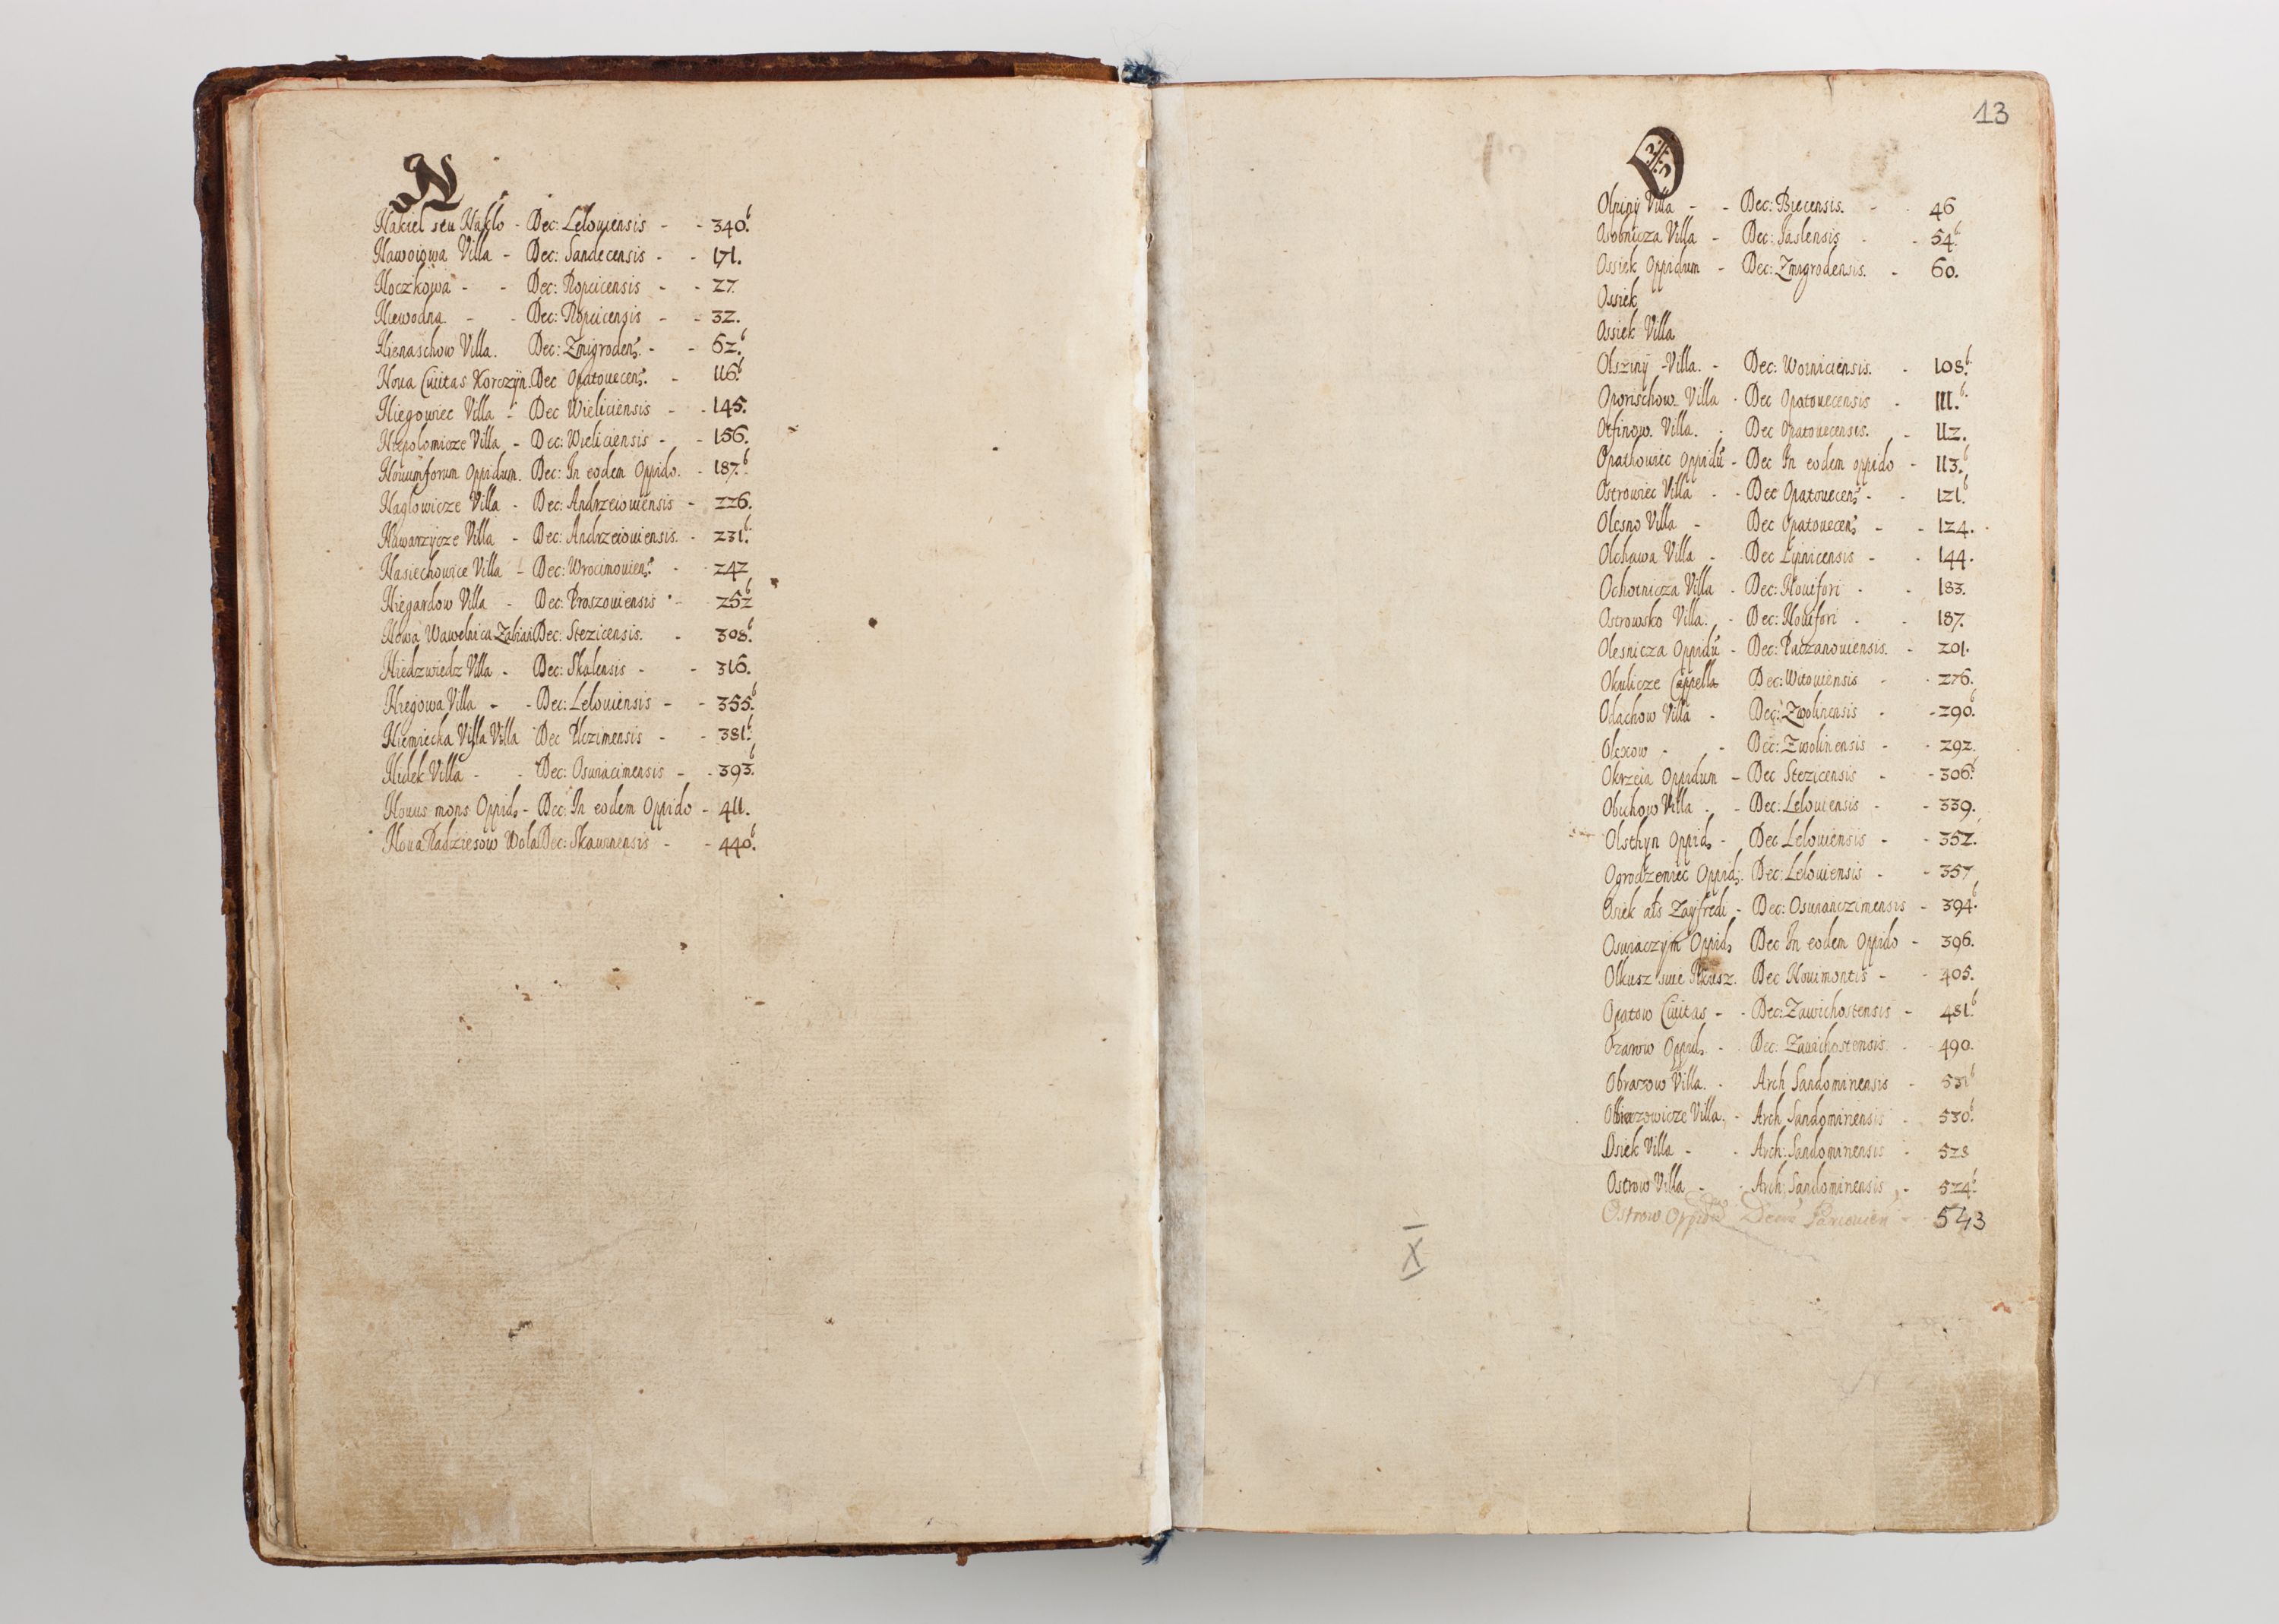 N
Nakiel seu Naklo - Dec: Leloviensis - - 340.b
Nawoiowa Villa - Dec: Sandecensis - - 171.
Noczkowa - - Dec: Ropcicensis - - 27
Niewodna. - - Dec: Ropcicensis - - 32.
Nienaschow Villa. Dec: Zmigrodens. - - 62.b
Noua Ciuitas Korczyn. Dec Opatouecens. - 116.b
Niegowiec Villa - Dec Wieliciensis - - 145.
Niepolomicze Villa - Dec: Wieliciensis - - 156.
Nouumforum Oppidum. Dec: In eodem Oppido. - 187.b
Naglowicze Villa - Dec: Andrzeiouiensis - 226.
Nawarzycze Villa - Dec: Andrzeiouiensis. - 231.b
Nasiechowice Villa - Dec: Wrocimouiens. - 247
Niegardow Villa - Dec: Proszouiensis - 252b
Nowa Wawelnica Dec: Stezicensis. - 308.b
Niedzwiedz Villa - Dec: Skalensis - - 316.
Niegowa Villa - - Dec: Lelouiensis - - 355.b
Niemiecka Villa Dec - - 381.b
Nidek Villa - - Dec: Osuiacimensis - - 393.b
Nouus mons Oppid - Dec: In eodem Oppido - 411.
Noua Radziesow Wola Dec: Skawinensis - - 440.b
13
O
Olpiny Villa - - Dec: Biecensis. - - 46
Osobnicza Villa - Dec: Iaslensis - - 54.b
Ossiek Oppidum - Dec: Zmigrodensis. - 60.
Ossiek
Ossiek Villa
Olsziny Villa. - Dec: Woiniciensis. - 108.b
Oporischow Villa - Dec Opatouecensis - 111.b
Otfinow. Villa. - Dec Opatouecensis. - 112.
Opathowiec Oppidu - Dec In eodem oppido - 113.b
Ostrowiec Villa - - Dec Opatouecens - - 121.b
Olesno Villa - Dec Opatouecens - - 124.
Olchawa Villa - Dec Lipnicensis - - 144.
Ochotnicza Villa - Dec: Nouifori - - 183.
Ostrowsko Villa. - Dec: Nouifori - - 187.
Olesnicza Oppidu - Dec: Paczanouiensis. - 201.
Okulicze Cappella Dec: Witouiensis - - 276.
Odachow Villa - Dec: Zwolinensis - - 290.b
Olexow - - Dec: Zwolinensis - - 292.
Okrzeia Oppidum - Dec Stezicensis - - 306.b
Obichow Villa - - Dec: Lelouiensis - - 339.
Olsthyn Oppid - Dec Lelouiensis - - 352.
Ogrodzeniec Oppid. Dec: Lelouiensis - - 357
Osiek als Zayfredi - Dec: Osuianczimensis - 394.b
Osuiaczym Oppid Dec In eodem Oppido - 396.
Olkusz siue Ilkusz. Dec Nouimontis - - 405.
Opatow Ciuitas - - Dec: Zawichostensis - 481.b
Ozarow Oppid. - Dec: Zauichostensis. - 490.
Obrazow Villa. - Arch Sandomiriensis - 531b
Villa. - Arch Sandomiriensis - 530.b
Osiek Villa - - Arch: Sandomiriensis - 528
Ostrow Villa - - Arch: Sandomiriensis - 524.b
Ostrow Oppidu - 543
X